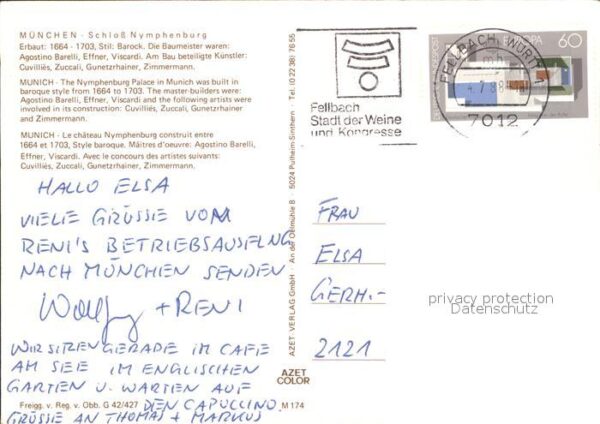 MÜNCHEN - Schloß Nymphenburg
Erbaut: 1664 - 1703, Stil: Barock. Die Baumeister waren:
Agostino Barelli, Effner, Viscardi. Am Bau beteiligte Künstler:
Cuvilliès, Zuccali, Gunetzrhainer, Zimmermann.
MUNICH - The Nymphenburg Palace in Munich was built in
baroque style from 1664 to 1703. The master-builders were:
Agostino Barelli, Effner, Viscardi and the following artists were
involved in its construction: Cuvilliès, Zuccali, Gunetzrhainer
and Zimmermann.
MUNICH - Le château Nymphenburg construit entre
1664 et 1703, Style baroque. Maîtres d'oeuvre: Agostino Barelli,
Effner, Viscardi. Avec le concours des artistes suivants:
Cuvilliès, Zuccali, Gunetzrhainer, Zimmermann.
HALLO ELSA
VIELE GRÜSSE VOM
RENI'S BETRIEBSAUSFLUG
NACH MÜNCHEN SENDEN
Wolfgang + RENI
WIR SITZEN GERADE IM CAFE
AM SEE IM ENGLISCHEN
GARTEN U. WARTEN AUF
DEN CAPUCCINO
GRÜSSE AN THOMAS + MARKUS
Freigg. v. Reg. v. Obb. G 42/427
M 174
AZET VERLAG GmbH · An der Ölmühle 8 · 5024 Pulheim-Sinthern · Tel. (0 22 38) 78 55
AZET
COLOR
Fellbach
Stadt der Weine
und Kongresse
FELLBACH, WÜRTT 1
7012
EUROPA
60
FRAU
ELSA
GERH.-
2121
privacy protection
Datenschutz